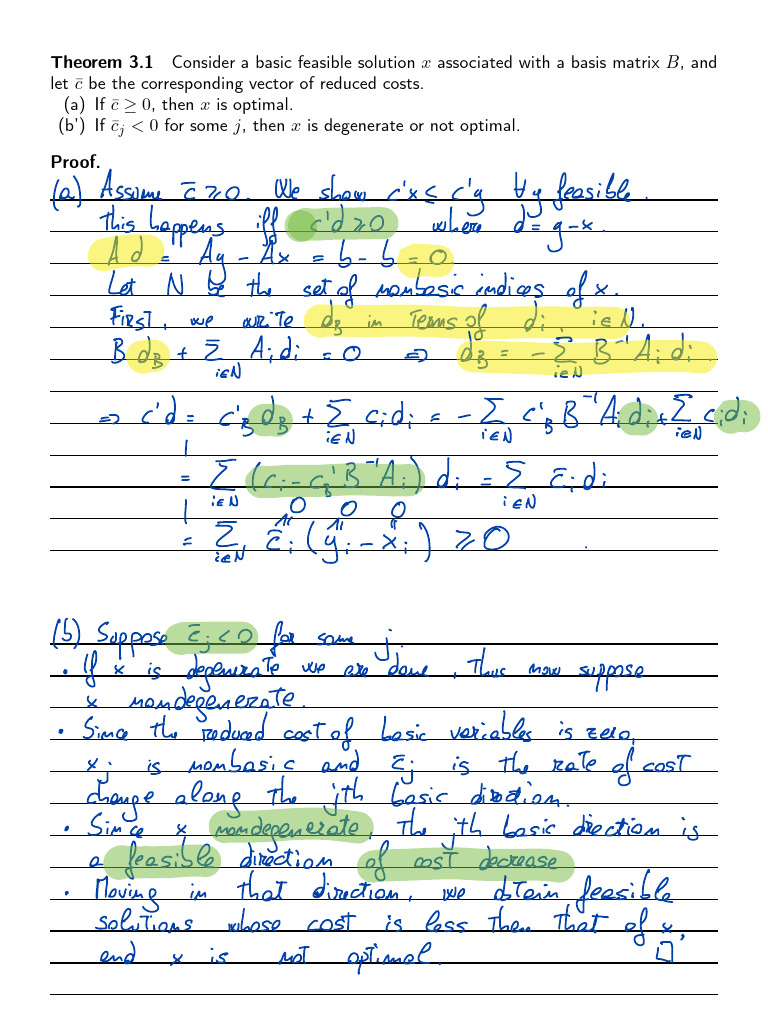 Theorem 3.1 Consider a basic feasible solution x associated with a basis matrix B, and
let c̄ be the corresponding vector of reduced costs.
(a) If c̄ ≥ 0, then x is optimal.
(b') If c̄_j < 0 for some j, then x is degenerate or not optimal.
Proof.
(a) Assume c̄ ≥ 0. We show c'x ≤ c'y ∀y feasible.
This happens iff c'd ≥ 0 where d = y-x.
Ad = Ay - Ax = b - b = 0
Let N be the set of nonbasic indices of x.
First, we write d_B in terms of d_i, i∈N.
B d_B + Σ_{i∈N} A_i d_i = 0 ⇒ d_B = - Σ_{i∈N} B⁻¹ A_i d_i
⇒ c'd = c'_B d_B + Σ_{i∈N} c_i d_i = - Σ_{i∈N} c'_B B⁻¹ A_i d_i + Σ_{i∈N} c_i d_i
= Σ_{i∈N} (c_i - c_B' B⁻¹ A_i) d_i = Σ_{i∈N} c̄_i d_i
0 0 0
= Σ_{i∈N} c̄_i (y_i - x_i) ≥ 0
(b) Suppose c̄_j < 0 for some j.
• If x is degenerate we are done, thus now suppose
x nondegenerate.
• Since the reduced cost of basic variables is zero,
x_j is nonbasic and c̄_j is the rate of cost
change along the jth basic direction.
• Since x nondegenerate, the jth basic direction is
a feasible direction of cost decrease
• Moving in that direction, we obtain feasible
solutions whose cost is less then that of x,
and x is not optimal. □